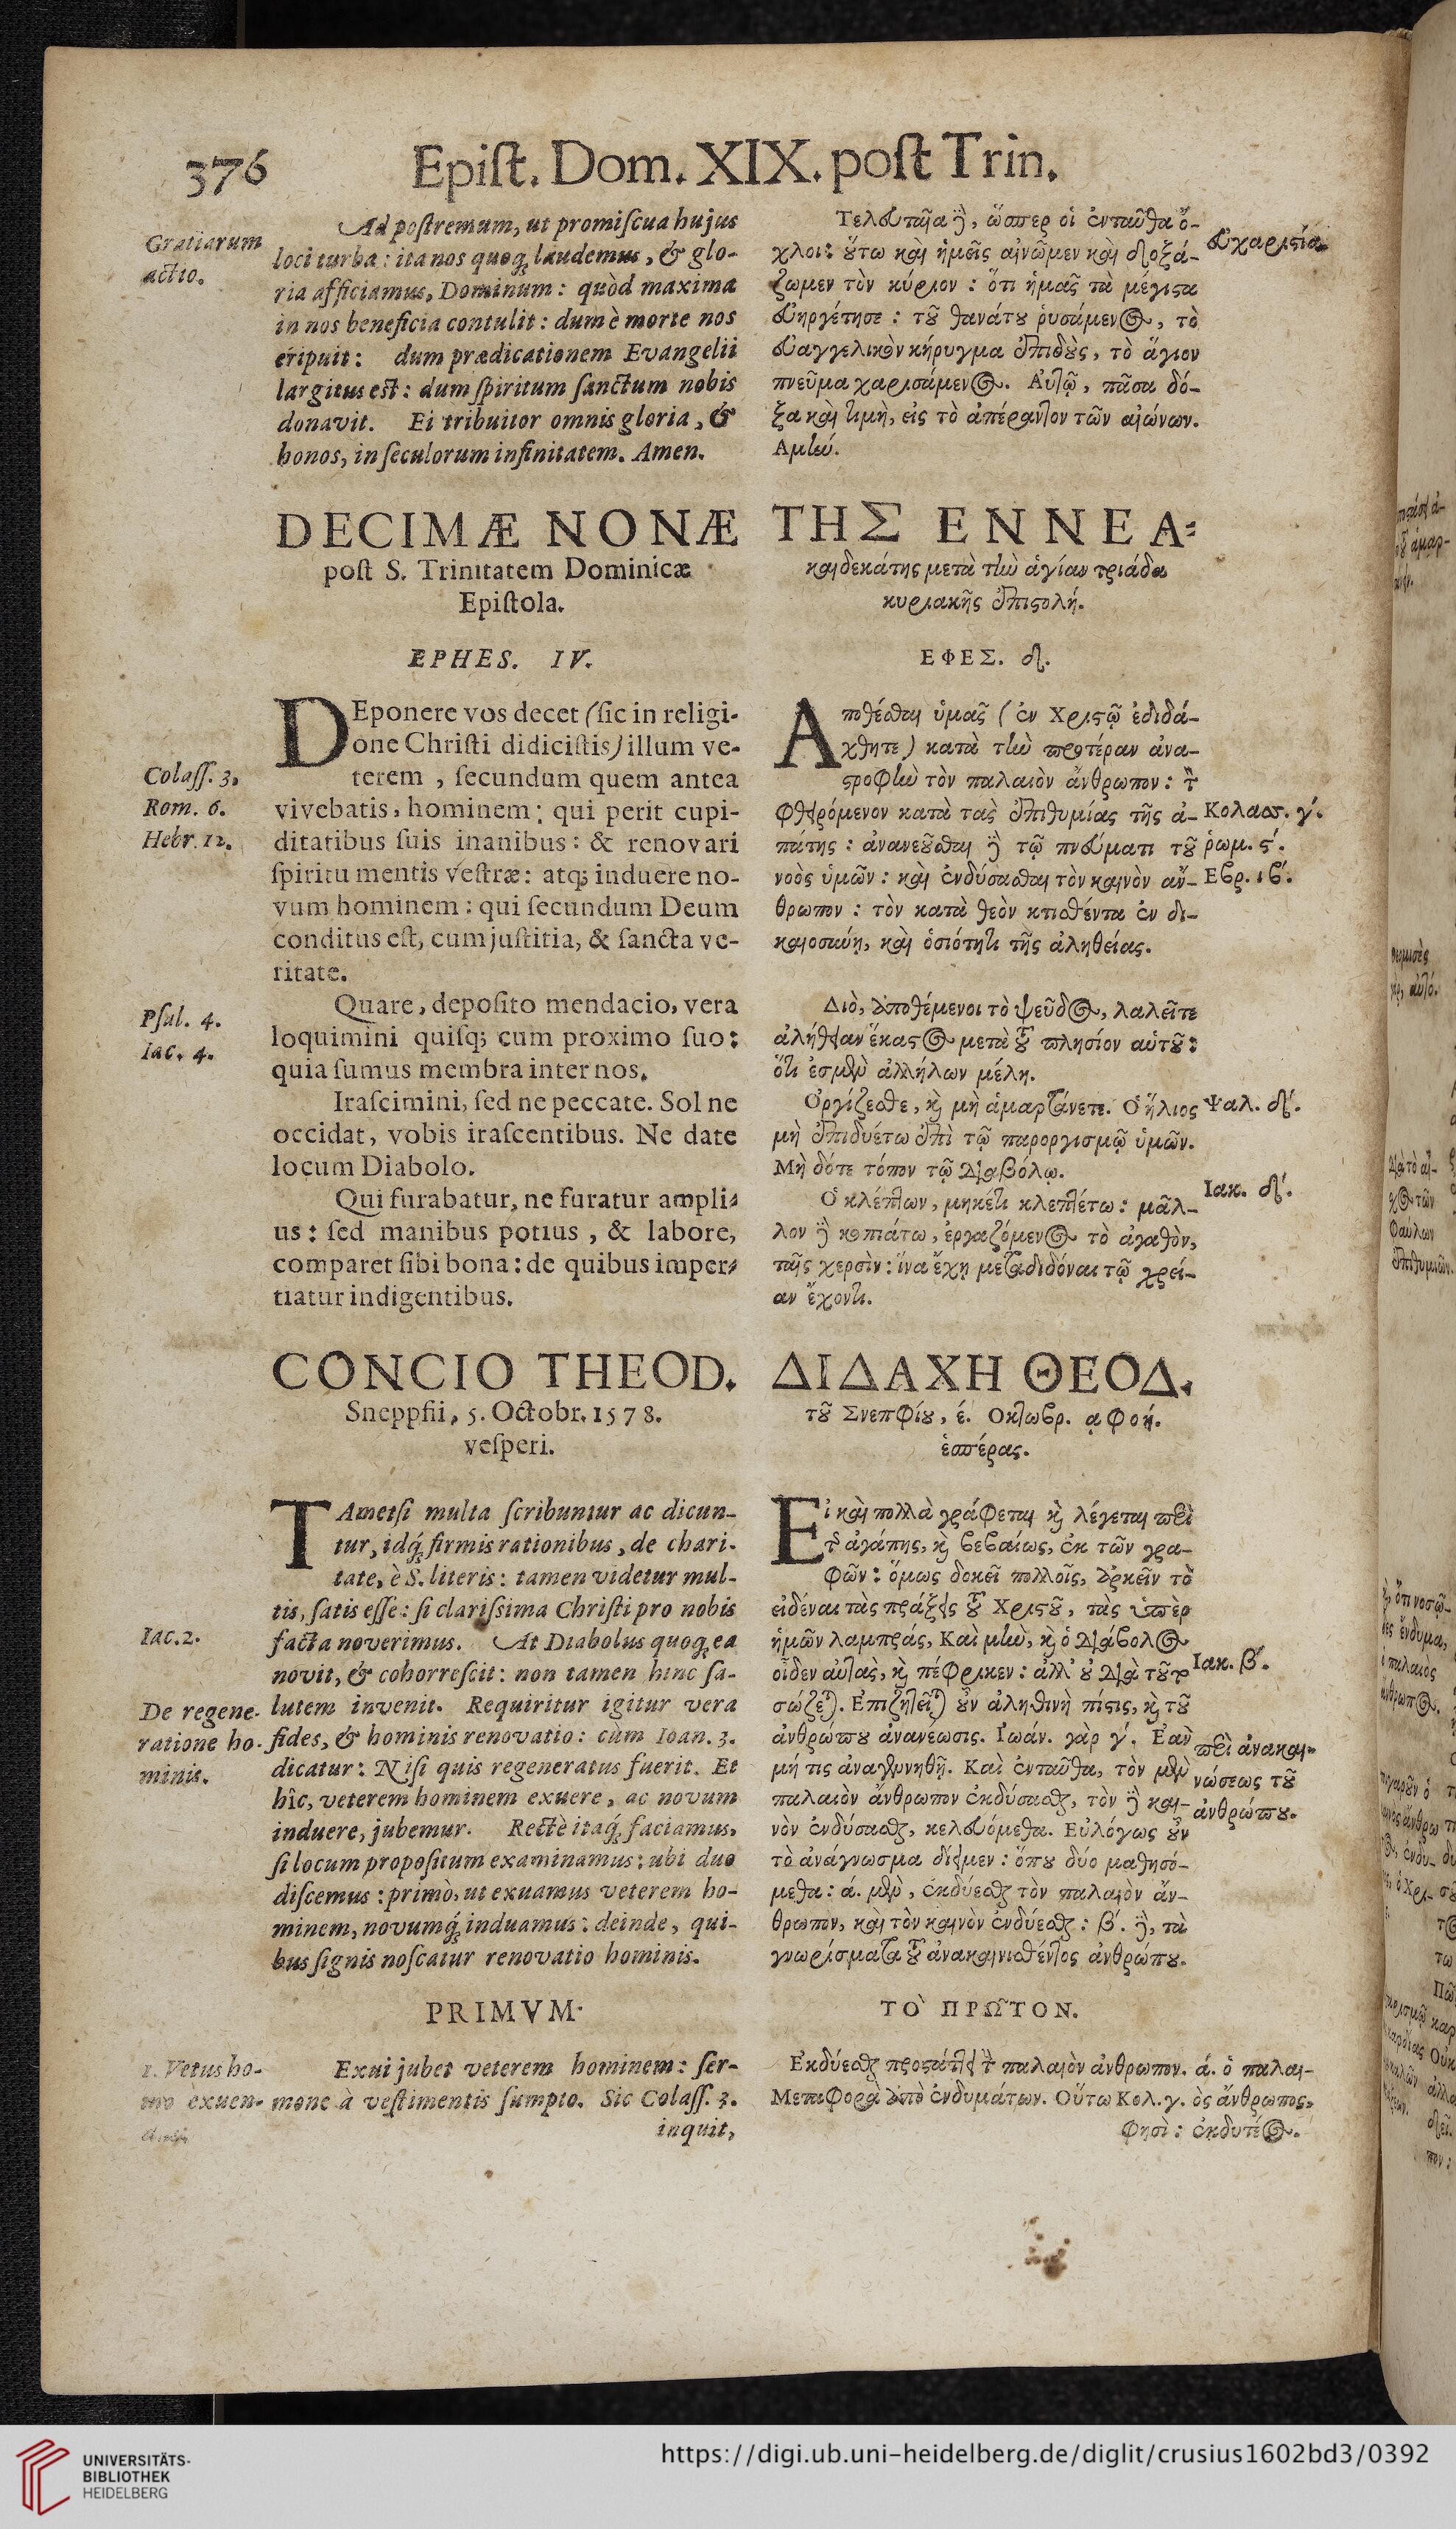 376
Epiſt. Dom. XIX. poſt Trin.
Gratiarum
actio.
Ad poſtremum, ut promiſcua hujus
loci turba: ita nos quoq; laudemus, & glo-
ria afficiamus, Dominum: quòd maxima
in nos beneficia contulit: dum è morte nos
eripuit: dum prædicationem Evangelii
largitus eſt: dum ſpiritum ſanctum nobis
donavit. Ei tribuitor omnis gloria, &
honos, in ſeculorum infinitatem. Amen.
DECIMÆ NONÆ
poſt S. Trinitatem Dominicæ
Epiſtola.
EPHES. IV.
DEponere vos decet (ſic in religi-
one Chriſti didiciſtis) illum ve-
terem, ſecundum quem antea
vivebatis, hominem: qui perit cupi-
ditatibus ſuis inanibus: & renovari
ſpiritu mentis veſtræ: atq; induere no-
vum hominem: qui ſecundum Deum
conditus eſt, cum juſtitia, & ſancta ve-
ritate.
Colaſſ. 3.
Rom. 6.
Hebr. 12.
Quare, depoſito mendacio, vera
loquimini quiſq; cum proximo ſuo:
quia ſumus membra inter nos.
Pſal. 4.
Iac. 4.
Iraſcimini, ſed ne peccate. Sol ne
occidat, vobis iraſcentibus. Ne date
locum Diabolo.
Qui furabatur, ne furatur ampli-
us: ſed manibus potius, & labore,
comparet ſibi bona: de quibus imper-
tiatur indigentibus.
CONCIO THEOD.
Sneppfii, 5. Octobr. 1578.
veſperi.
TAmetſi multa ſcribuntur ac dicun-
tur, idq́; firmis rationibus, de chari-
tate, è S. literis: tamen videtur mul-
tis, ſatis eſſe: ſi clariſsima Chriſti pro nobis
facta noverimus. At Diabolus quoq; ea
novit, & cohorreſcit: non tamen hinc ſa-
lutem invenit. Requiritur igitur vera
fides, & hominis renovatio: cùm Ioan. 3.
dicatur: Niſi quis regeneratus fuerit. Et
hîc, veterem hominem exuere, ac novum
induere, jubemur. Rectè itaq́; faciamus,
ſi locum propoſitum examinamus: ubi duo
diſcemus: primò, ut exuamus veterem ho-
minem, novumq́; induamus: deinde, qui-
bus ſignis noſcatur renovatio hominis.
Iac. 2.
De regene-
ratione ho-
minis.
PRIMVM.
Exui jubet veterem hominem: ſer-
mone à veſtimentis ſumpto. Sic Colaſſ. 3.
inquit,
1. Vetus ho-
mo exuen-
Τελευταῖα δὲ, ὥσπερ οἱ ἐνταῦθα ὄ-
χλοι: οὕτω καὶ ἡμεῖς αἰνῶμεν καὶ δοξά-
ζωμεν τὸν κύριον: ὅτι ἡμᾶς τὰ μέγιστα
εὐηργέτησε: τοῦ θανάτου ῥυσάμενος, τὸ
εὐαγγελικὸν κήρυγμα ἐπιδοὺς, τὸ ἅγιον
πνεῦμα χαρισάμενος. Αὐτῷ, πᾶσα δό-
ξα καὶ τιμὴ, εἰς τὸ ἀπέραντον τῶν αἰώνων.
Αμήν.
εὐχαριστία.
ΤΗΣ ΕΝΝΕΑ-
καιδεκάτης μετὰ τὴν ἁγίαν τριάδα
κυριακῆς ἐπιστολή.
ΕΦΕΣ. δ.
Αποθέσθαι ὑμᾶς (ἐν Χριστῷ ἐδιδά-
χθητε) κατὰ τὴν προτέραν ἀνα-
στροφὴν τὸν παλαιὸν ἄνθρωπον: τὸν
φθειρόμενον κατὰ τὰς ἐπιθυμίας τῆς ἀ-
πάτης: ἀνανεοῦσθαι δὲ τῷ πνεύματι τοῦ
νοὸς ὑμῶν: καὶ ἐνδύσασθαι τὸν καινὸν ἄν-
θρωπον: τὸν κατὰ θεὸν κτισθέντα ἐν δι-
καιοσύνῃ, καὶ ὁσιότητι τῆς ἀληθείας.
Κολασσ. γ΄.
ῥωμ. ς΄.
Εβρ. ιβ΄.
Διὸ, ἀποθέμενοι τὸ ψεῦδος, λαλεῖτε
ἀλήθειαν ἕκαστος μετὰ τοῦ πλησίον αὐτοῦ:
ὅτι ἐσμὲν ἀλλήλων μέλη.
Οργίζεσθε, καὶ μὴ ἁμαρτάνετε. Ὁ ἥλιος
μὴ ἐπιδυέτω ἐπὶ τῷ παροργισμῷ ὑμῶν.
Μὴ δότε τόπον τῷ διαβόλῳ.
Ψαλ. δ΄.
Ιακ. δ΄.
Ὁ κλέπτων, μηκέτι κλεπτέτω: μᾶλ-
λον δὲ κοπιάτω, ἐργαζόμενος τὸ ἀγαθὸν,
ταῖς χερσὶν: ἵνα ἔχῃ μεταδιδόναι τῷ χρεί-
αν ἔχοντι.
ΔΙΔΑΧΗ ΘΕΟΔ.
τοῦ Σνεπφίου, έ. Οκτωβρ. ͵αφοή.
ἑσπέρας.
Εἰ καὶ πολλὰ γράφεται καὶ λέγεται περὶ
τῆς ἀγάπης, καὶ βεβαίως, ἐκ τῶν γρα-
φῶν: ὅμως δοκεῖ πολλοῖς, ἀρκεῖν τὸ
εἰδέναι τὰς πράξεις τοῦ Χριστοῦ, τὰς ὑπὲρ
ἡμῶν λαμπράς, Καὶ μὴν, καὶ ὁ διάβολος
οἶδεν αὐτὰς, καὶ πέφρικεν: ἀλλ᾽ οὐ διὰ τοῦτο
σώζεται. Επιζητεῖται οὖν ἀληθινὴ πίστις, καὶ τοῦ
ἀνθρώπου ἀνανέωσις. Ιωάν. γὰρ γ΄. Ἐὰν
μή τις ἀναγεννηθῇ. Καὶ ἐνταῦθα, τὸν μὲν
παλαιὸν ἄνθρωπον ἐκδύσασθαι, τὸν δὲ και-
νὸν ἐνδύσασθαι, κελευόμεθα. Εὐλόγως οὖν
τὸ ἀνάγνωσμα δίιμεν: ὅπου δύο μαθησό-
μεθα: ά. μὲν, ἐκδύεσθαι τὸν παλαιὸν ἄν-
θρωπον, καὶ τὸν καινὸν ἐνδύεσθαι: β΄. δὲ, τὰ
γνωρίσματα τοῦ ἀνακαινισθέντος ἀνθρώπου.
Ιακ. β΄.
περὶ ἀνακαι-
νώσεως τοῦ
ἀνθρώπου.
ΤΟ ΠΡΩΤΟΝ.
Ἐκδύεσθαι προστάττει τὸν παλαιὸν ἄνθρωπον.
Μεταφορὰ ἀπὸ ἐνδυμάτων. Οὕτω Κολ. γ.
φησὶ:
ά. ὁ παλαι-
ὸς ἄνθρωπος,
ἐκδυτέος.
UNIVERSITÄTS-
BIBLIOTHEK
HEIDELBERG
https://digi.ub.uni-heidelberg.de/diglit/crusius1602bd3/0392